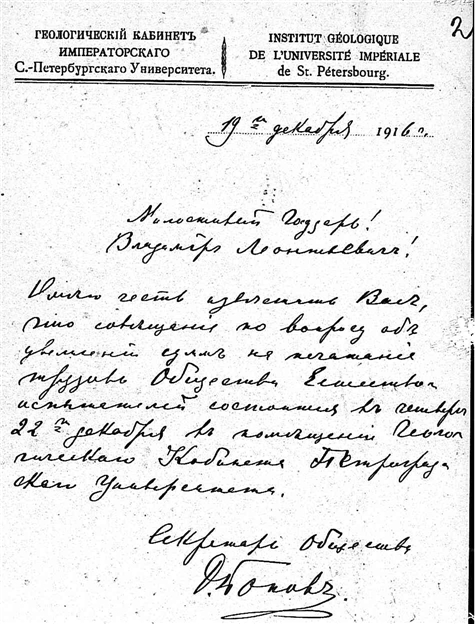 2
ГЕОЛОГИЧЕСКІЙ КАБИНЕТЪ
ИМПЕРАТОРСКАГО
С.-Петербургскаго Университета.
INSTITUT GÉOLOGIQUE
DE L'UNIVERSITÉ IMPÉRIALE
de St. Pétersbourg.
19го декабря 1916 г.
Милостивый Государь!
Владимiръ Леонтьевичъ!
Имѣю честь извѣстить Васъ,
что совѣщаніе по вопросу объ
суммъ на печатаніе
трудовъ Общества Естество-
испытателей состоится въ четвергъ
22го декабря въ помѣщеніи Геоло-
гическаго Кабинета Петроград-
скаго Университета.
Секретарь Общества